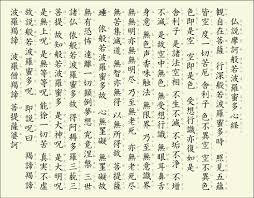 仏説摩訶般若波羅蜜多心経
観自在菩薩 行深般若波羅蜜多時 照見五蘊
皆空 度一切苦厄 舎利子 色不異空 空不異
色 色即是空 空即是色 受想行識亦復如是
舎利子 是諸法空相 不生不滅 不垢不浄 不増
不減 是故空中 無色 無受想行識 無眼耳鼻舌
身意 無色声香味触法 無眼界 乃至無意識界
無無明亦 無無明尽 乃至無老死 亦無老死尽
無苦集滅道 無智亦無得 以無所得故 菩提薩
埵 依般若波羅蜜多故 心無罣礙 無罣礙故
無有恐怖 遠離一切顛倒夢想 究竟涅槃 三世
諸仏 依般若波羅蜜多故 得阿耨多羅三藐三
菩提 故知般若波羅蜜多 是大神呪 是大明呪
是無上呪 是無等等呪 能除一切苦 真実不虚
故説般若波羅蜜多呪 即説呪曰 羯諦 羯諦
波羅羯諦 波羅僧羯諦 菩提薩婆訶